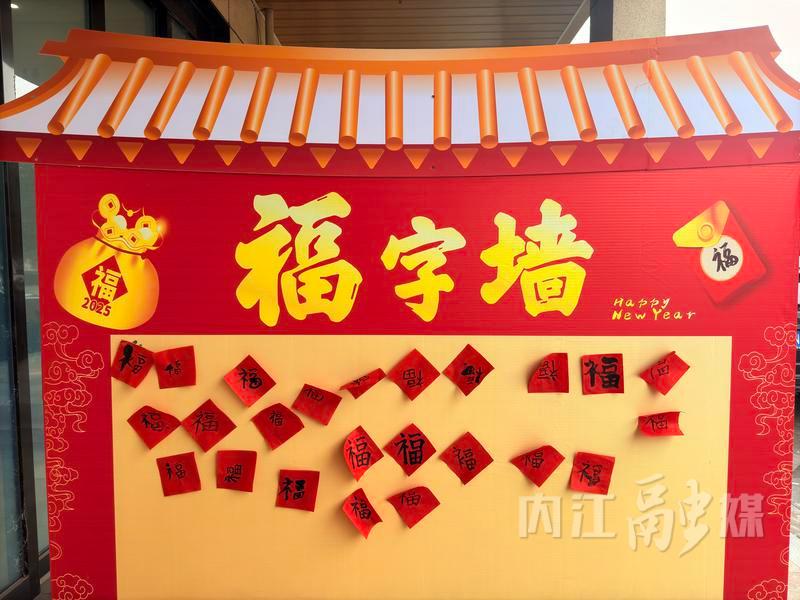 福字墙
福
2025
福
Happy
New Year
福 福 福 福 福 福 福 福 福 福
福 福 福 福
福 福 福 福 福
福 福 福 福 福
福
内江融媒